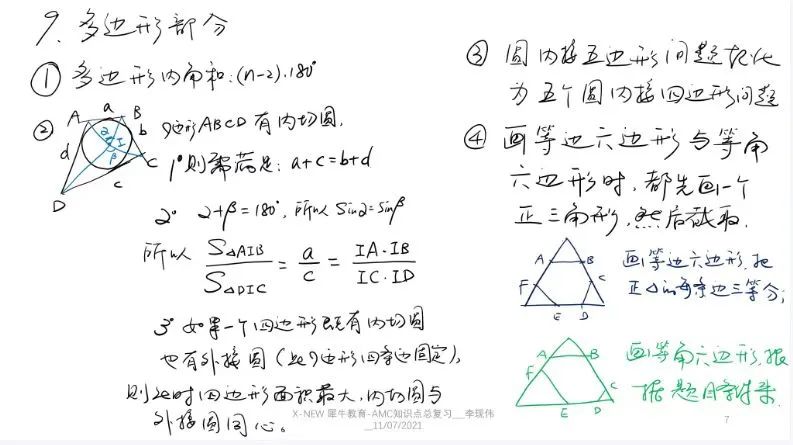 9. 多边形部分
① 多边形内角和:(n-2)·180°
②
A a B
b
d
α I
β
C
c
D
四边形ABCD有内切圆,
1° 则需满足: a+c=b+d
2° α+β=180°, 所以 sinα=sinβ
所以 S△AIB/S△DIC = a/c = IA·IB/IC·ID
3° 如果一个四边形既有内切圆
也有外接圆(此四边形四条边固定),
则此时四边形面积最大,内切圆与
外接圆同心。
③ 圆内接五边形问题转化
为五个圆内接四边形问题
④ 画等边六边形与等角
六边形时,都先画一个
正三角形,然后截取.
A B
F C
E D
画等边六边形,把
正△的每条边三等分;
A B
F C
E D
画等角六边形,根
据题目条件来.
X-NEW 犀牛教育-AMC知识点总复习__李现伟
__11/07/2021
7